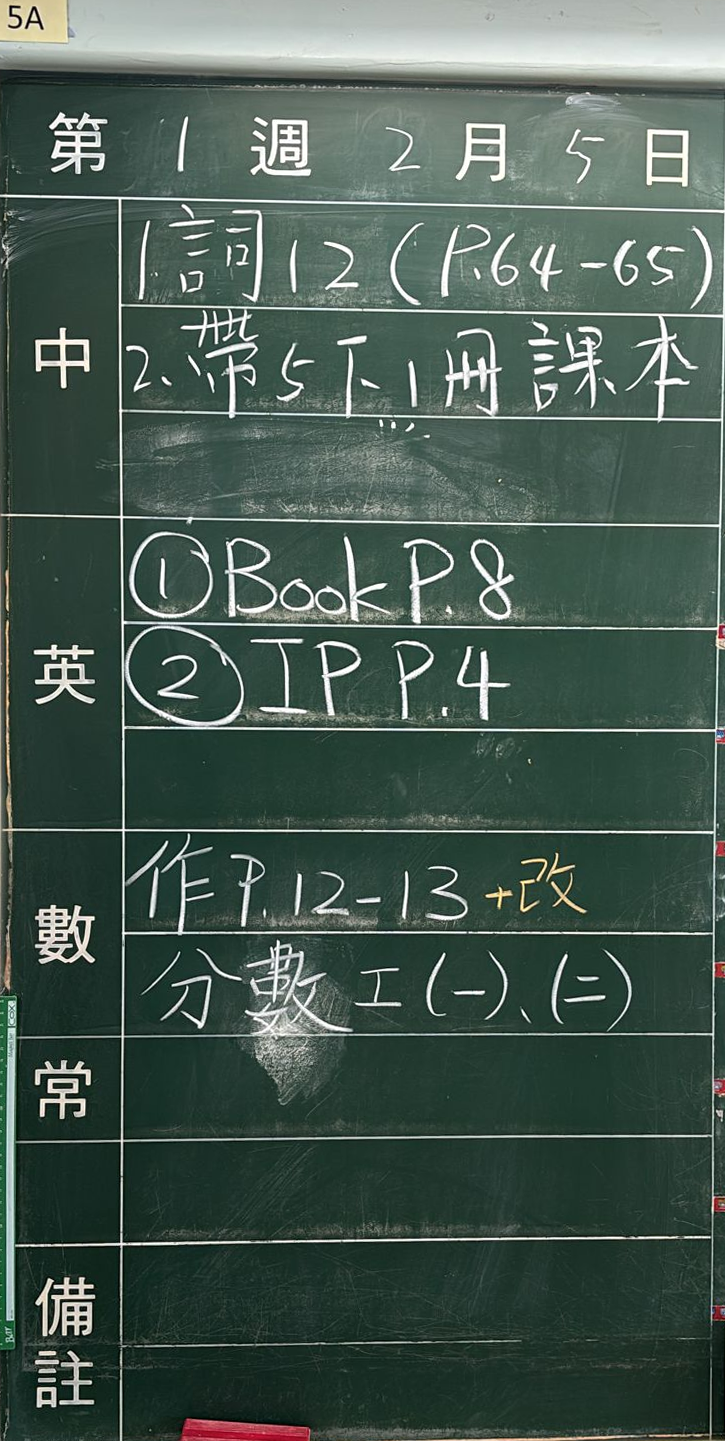 5A
第 1 週 2 月 5 日
中
1.詞12(P.64-65)
2、帶5下1冊課本
英
①Book P.8
②IP P.4
數
作P.12-13+改
分數工(一)、(二)
常
備註